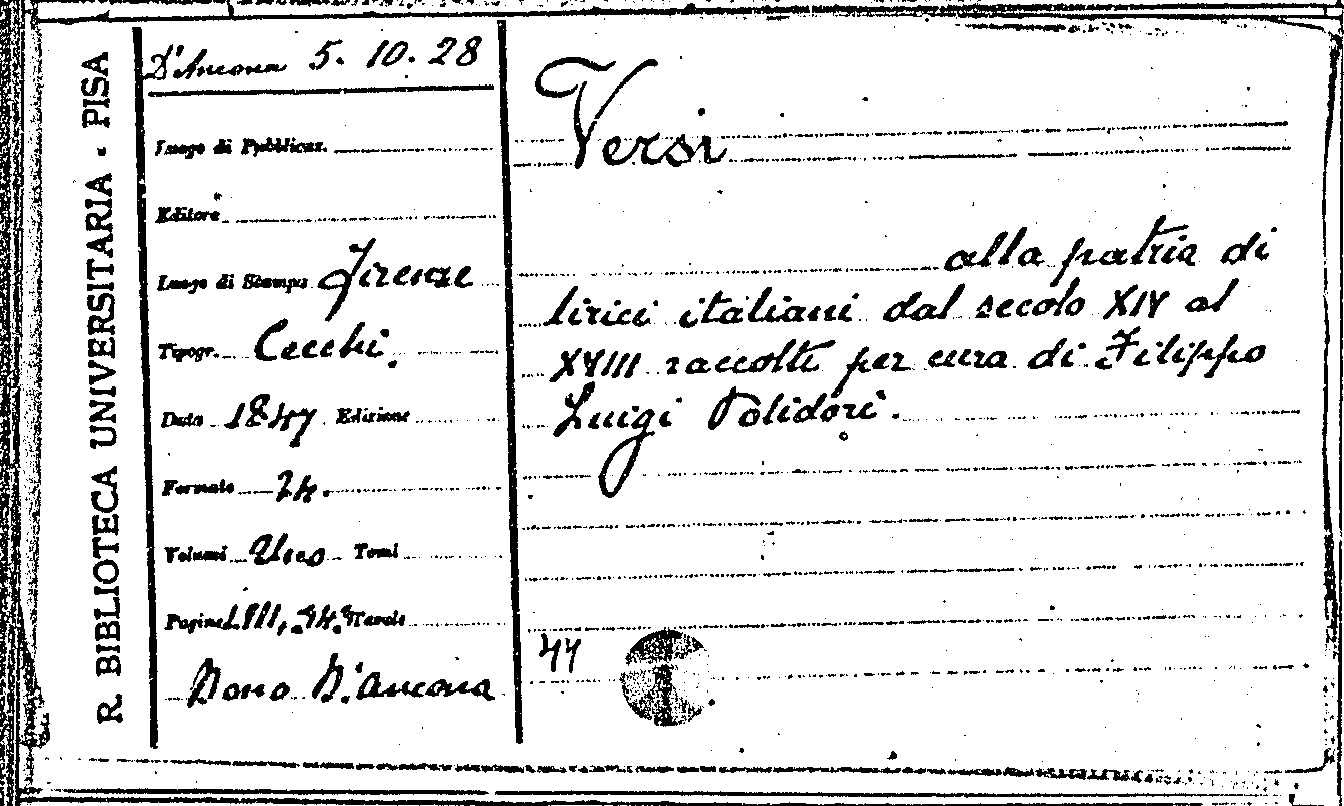 R. BIBLIOTECA UNIVERSITARIA - PISA
D'Ancona 5. 10. 28
Luogo di Pubblicaz.
Editore
Luogo di Stampa Firenze
Tipogr. Cecchi.
Data 1847 Edizione
Formato 24.
Volumi Uno Tomi
Pagine LVIII, Tavole
Dono D'Ancona
Versi
alla patria di
lirici italiani dal secolo XIV al
XVIII raccolti per cura di Filippo
Luigi Polidori.
44